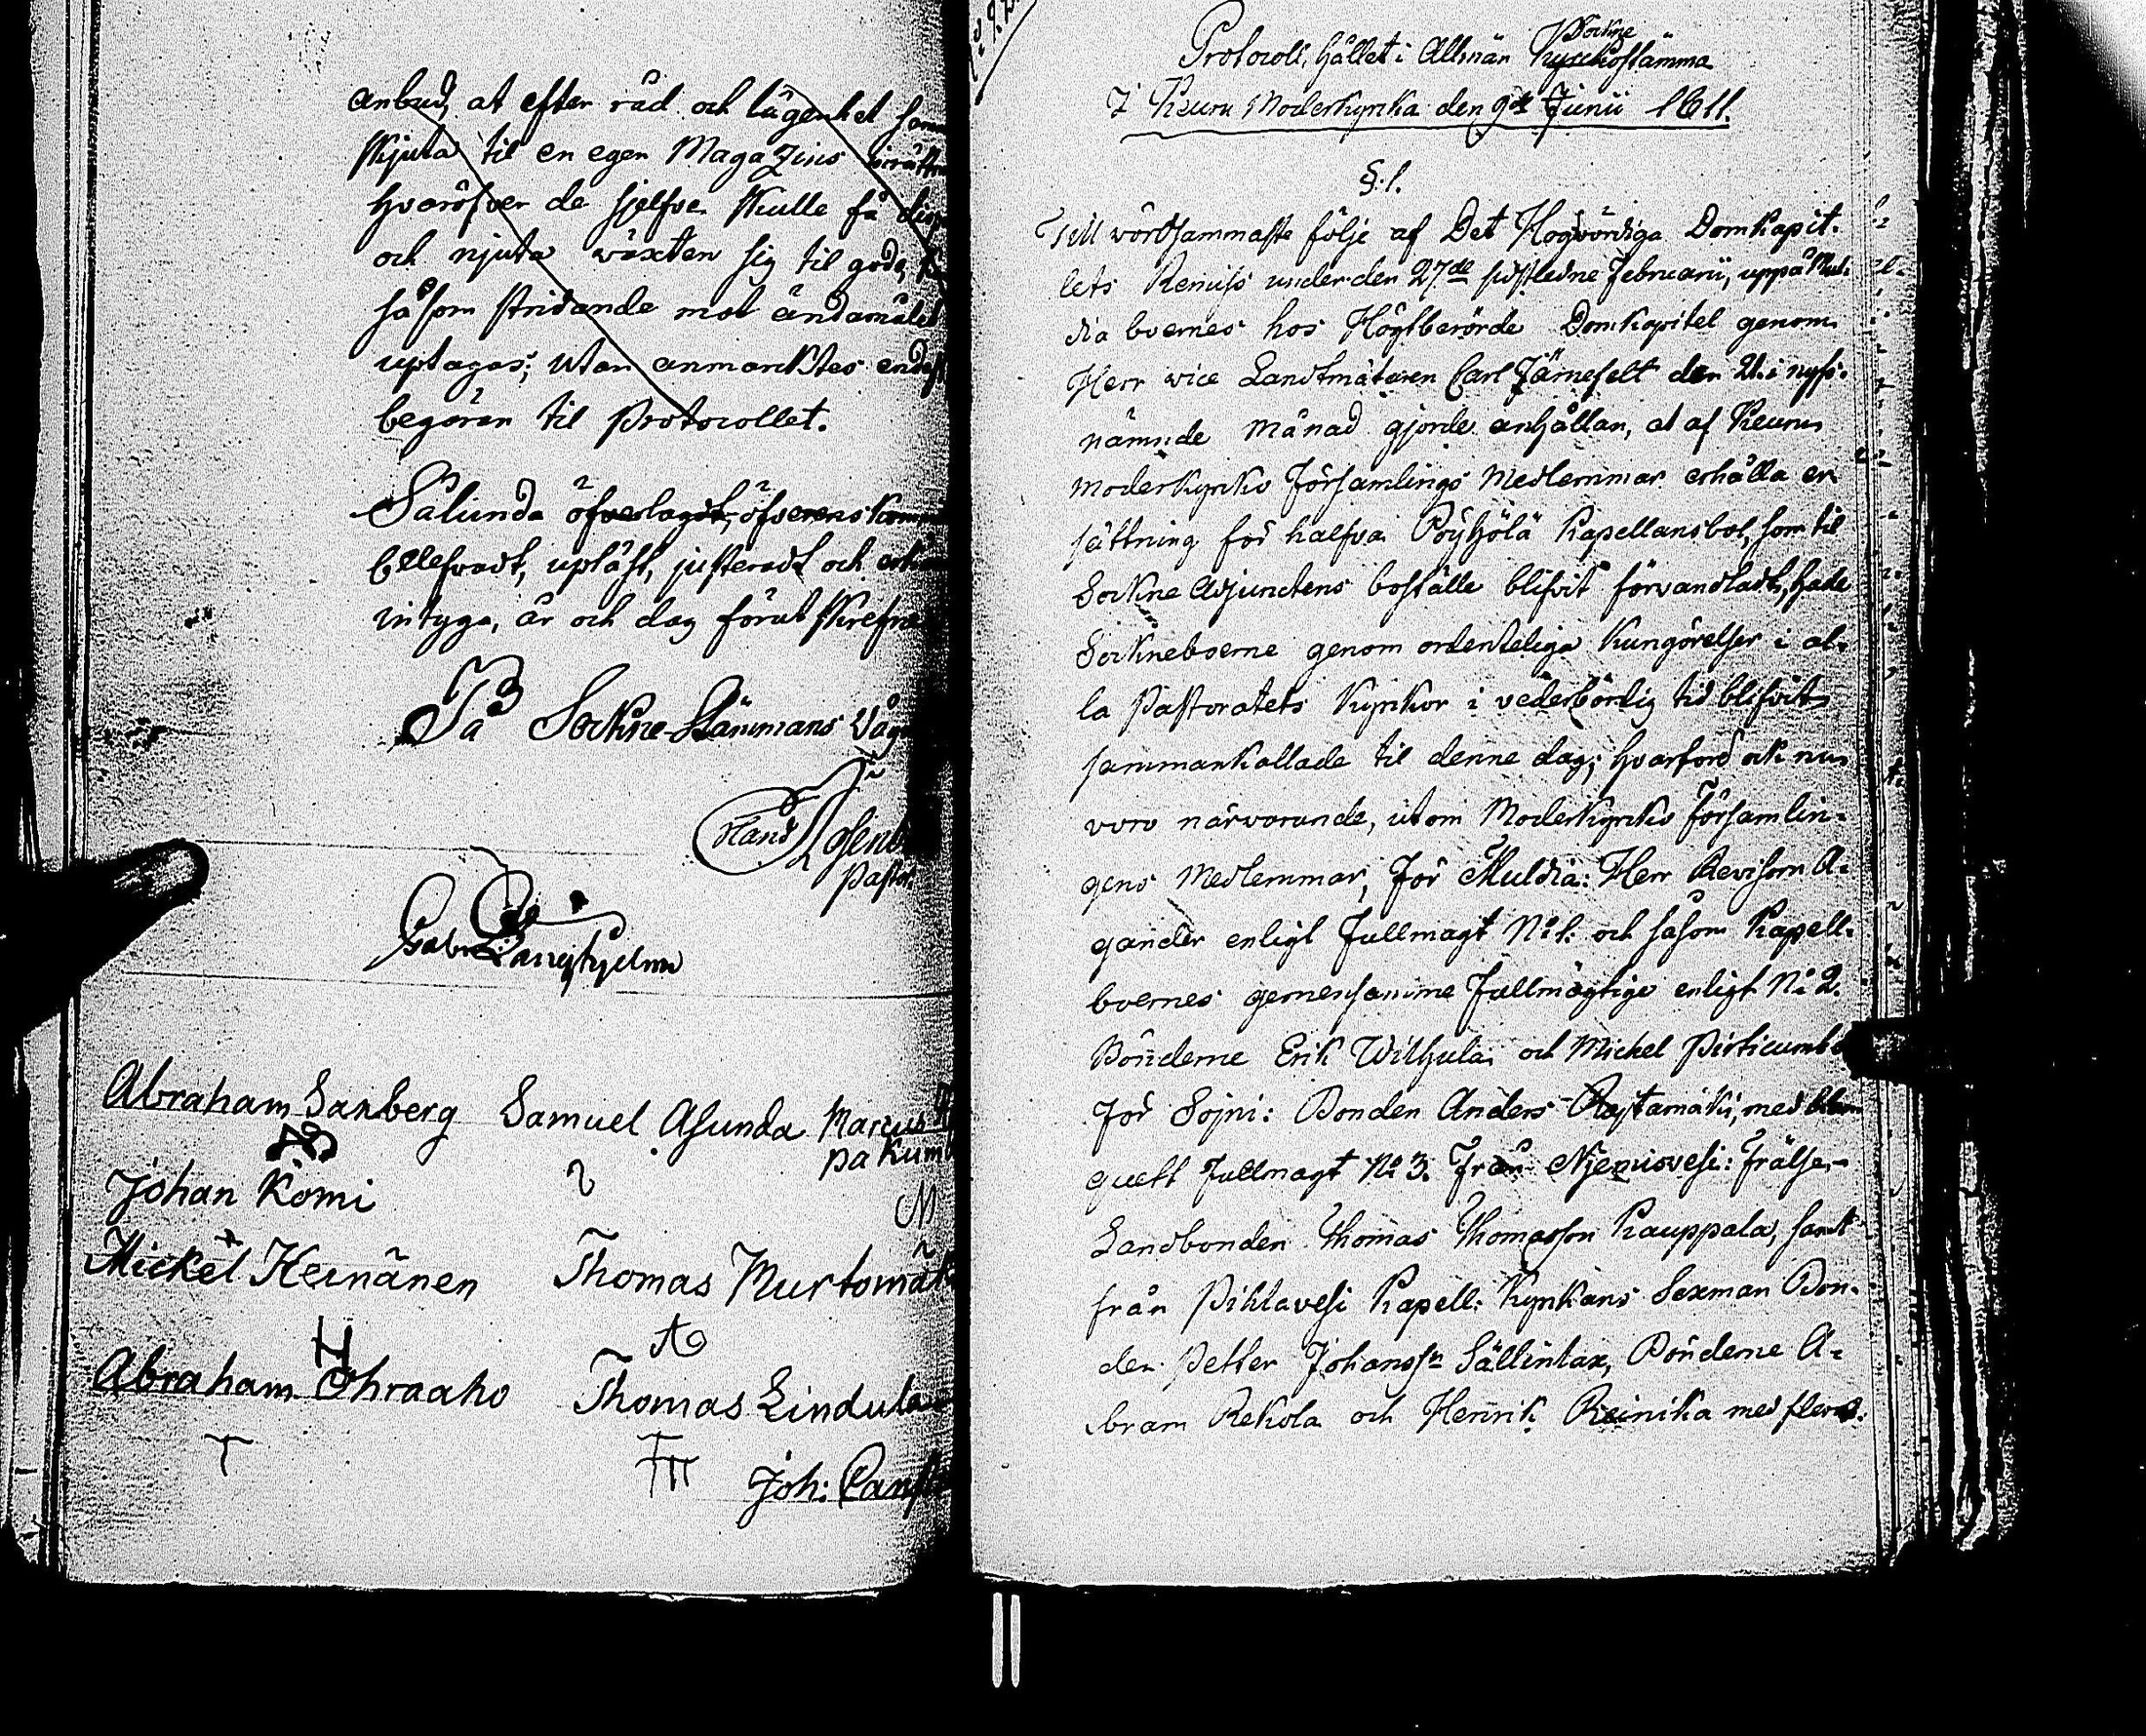 anbud, at efter råd och lägenhet
skjuta til en egen Magazins
hvaröfver de sjelfve skulle få
och njuta växten sig til godo,
såsom stridande mot ändamålet
uptagas; utan anmärktes
begäran til Protocollet.
Sålunda öfverlagdt, öfverens
upläst, justeradt och
intyga, år och dag förut skrefne
På Sockne-Stämmans Vägn
Hans
Past.
Gabr. Langhjelm
Abraham Sanberg Samuel Asunda Marcus
pa Kum
Johan Komi
M
Mickel Heinänen Thomas Murtomäk
H
Abraham Ohraaho Thomas Lindula
T
Joh:
Protocoll, hållet i Allmän Sockne
Kyrckostämma
i Keuru Moderkyrka den 9de Junii 1811.
§. 1.
Till vördsammaste följe af Det Högvördiga Domkapit-
lets Remiss under den 27de sistledne Februarii, uppå Mul-
dia boernes hos Högtberörde Domkapitel genom
Herr vice Landtmätaren Carl Järnefelt den 21 i nyss-
nämnde månad gjorde anhållan, at af Keuru
moderkyrko Församlings Medlemmar erhålla er
sättning för halfva Pöyhölä Kapellansbol, som til
Sockne Adjunctens boställe blifvit förvandladt, hade
Sockneboerne genom ordenteliga Kungörelser i al-
la Pastoratets Kyrkor i vederbörlig tid blifvit
sammankallade til denne dag; hvarför ock nu
voro närvarande, utom Moderkyrko Församlin-
gens Medlemmar, För Muldia: Herr Revisorn A-
gander enligt Fullmagt N:o 1. och såsom Kapell-
boernes gemensamme Fullmägtige enligt N:o 2.
Bönderne Erik Wilhula och Mickel Pirticumb
För Sojni: Bonden Anders Rajtamäki, med blan
quett Fullmagt N:o 3. Från Njemisvesi: Frälse-
Landbonden Thomas Thomasson Kauppala, samt
från Pihlavesi Kapell: Kyrkans Sexman Bon-
den Petter Johanss:n Sällintax, Bönderne A-
bram Rekola och Henrik Reinika med flera.